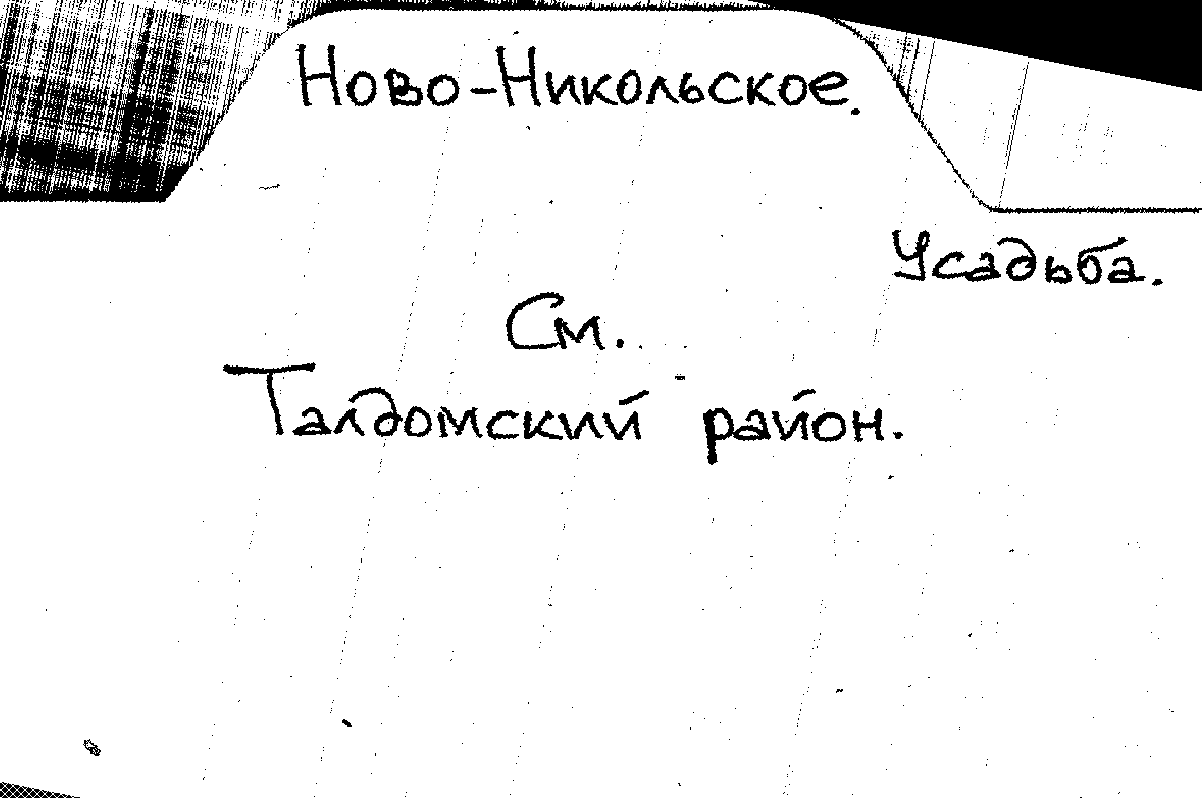 Ново-Никольское.
Усадьба.
См.
Талдомский район.